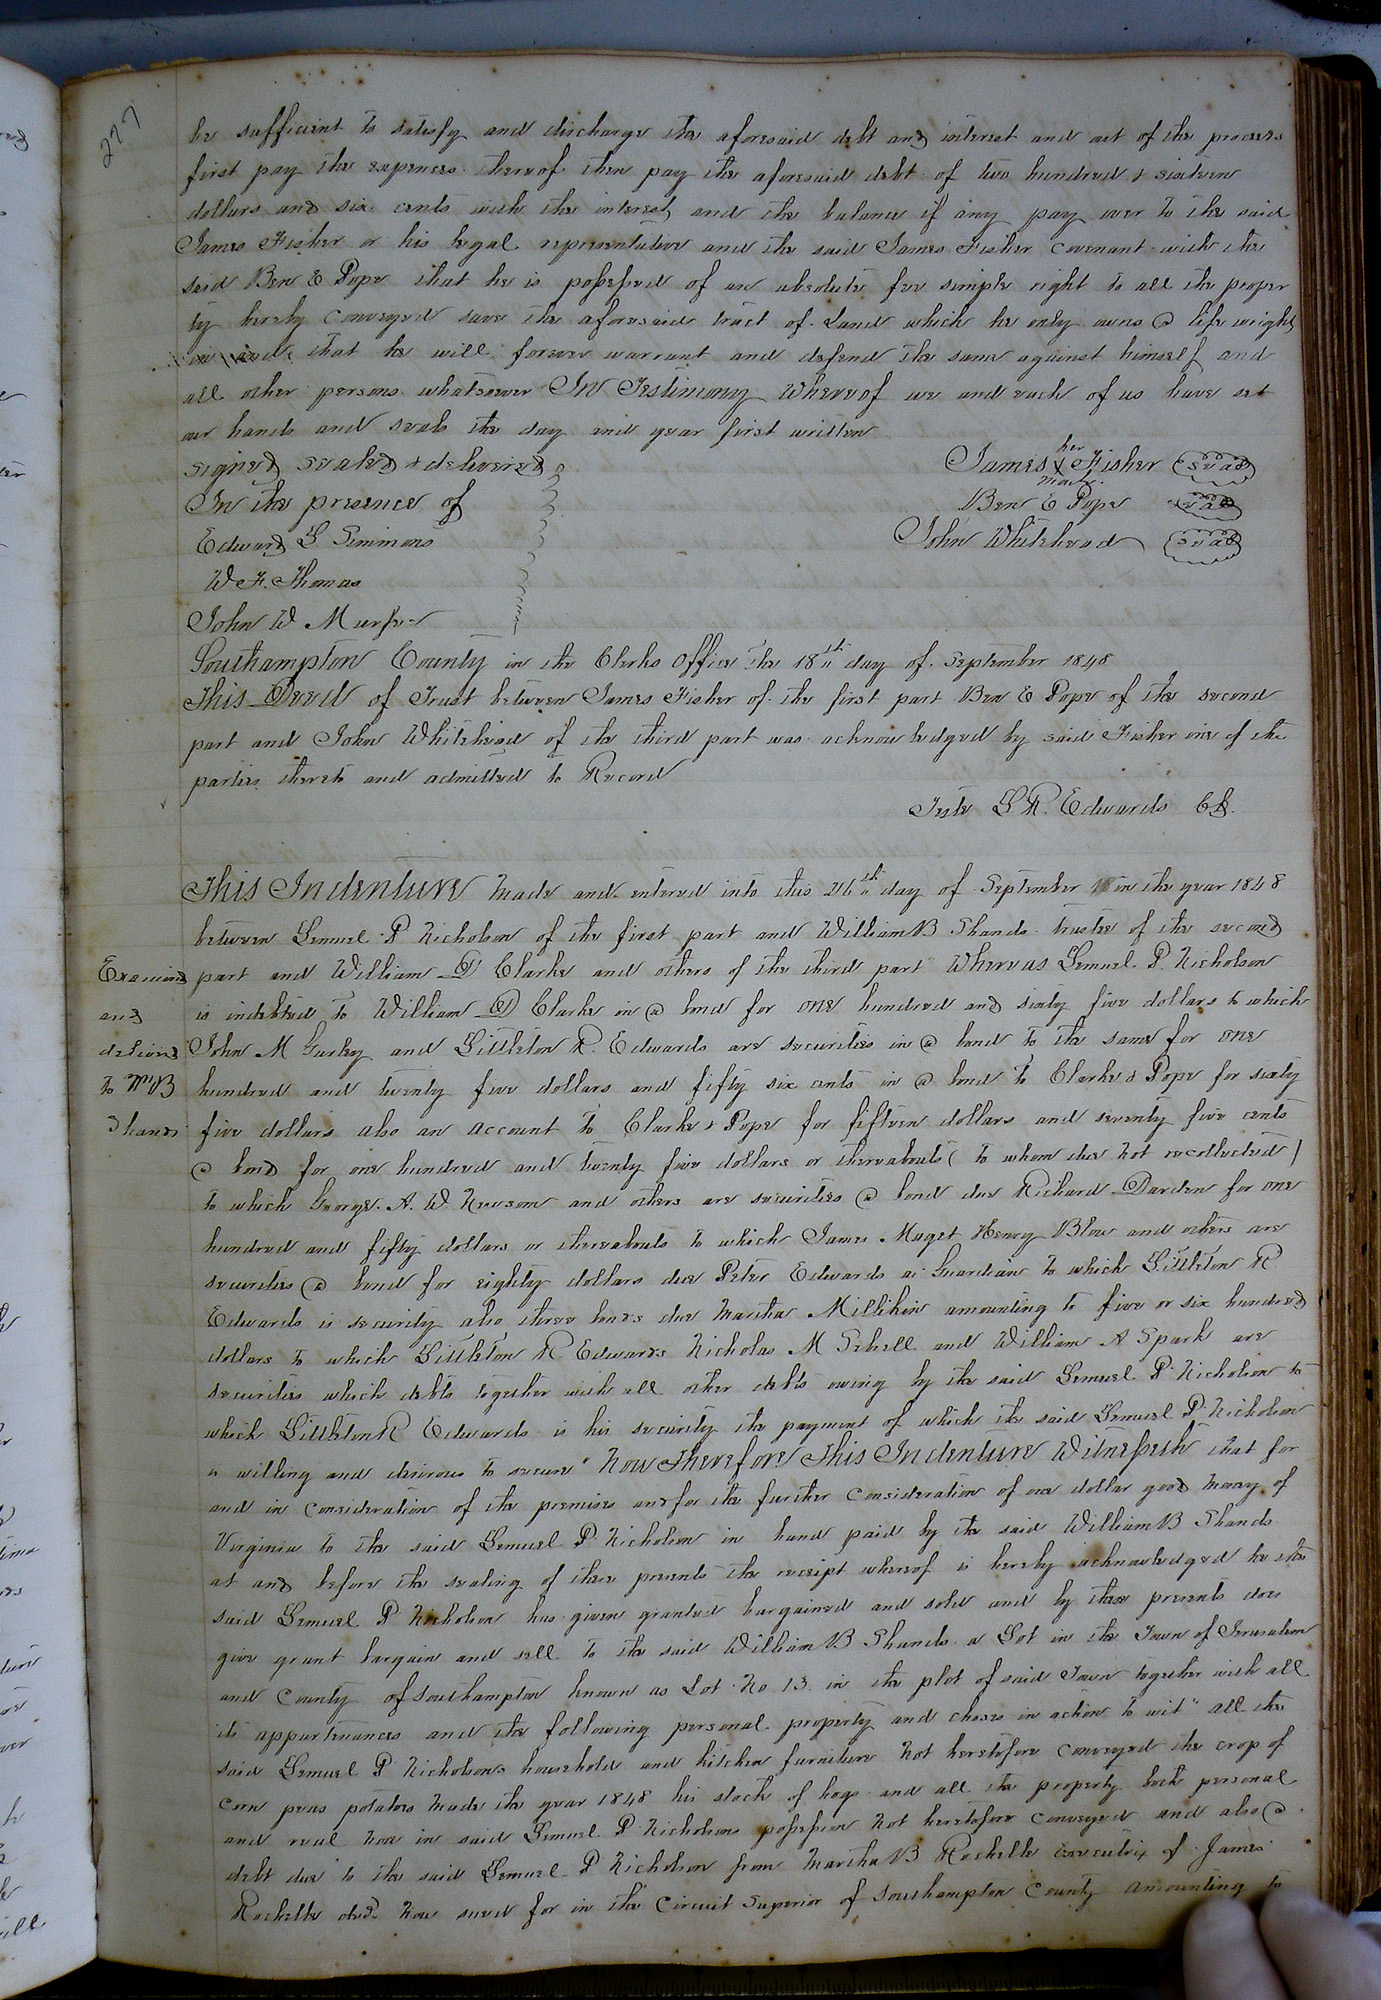 277
be sufficient to satisfy and discharge the aforesaid debt and interest and out of the proceeds
first pay the expences thereof then pay the aforesaid debt of two hundred & sixteen
dollars and six cents with the interest, and the balance if any pay over to the said
James Fisher or his legal representative and the said James Fisher covenant with the
said Ben E Pope that he is possessed of an absolute fee simple right to all the proper
ty hereby conveyed save the aforesaid tract of Land which he only owns a life wright
in and that he will forever warrant and defend the same against himself and
all other persons whatsoever In Testimony Whereof we and each of us have set
our hands and seals the day and year first written
signed sealed & delivered
In the presence of
Edward G Simmons
W F. Thomas
John W Murfee
James X Fisher seal
her
mark
Ben E Pope seal
John Whitehead seal
Southampton County in the Clerks Office the 18th day of September 1848
This Deed of Trust between James Fisher of the first part Ben E Pope of the second
part and John Whitehead of the third part was acknowledged by said Fisher one of the
parties thereto and admitted to Record
Teste L R. Edwards Clk.
This Indenture Made and entered into this 26th day of September in the year 1848
between Lemuel P Nicholson of the first part and William B Shands trustee of the second
part and William D Clarke and others of the third part" Whereas Lemuel P. Nicholson
is indebted to William D Clarke in a bond for one hundred and sixty five dollars to which
John M Gurley and Littleton R. Edwards are securities in a bond to the same for one
hundred and twenty five dollars and fifty six cents in a bond to Clarke & Pope for sixty
five dollars also an account to Clarke & Pope for fifteen dollars and seventy five cents
a bond for one hundred and twenty five dollars or thereabouts (to whom due not recollected)
to which George A. W. Newsom and others are securities a bond due Richard Darden for one
hundred and fifty dollars or thereabouts to which James Maget Henry Blow and others are
securities a bond for eighty dollars due Peter Edwards as Guardian to which Littleton R
Edwards is security also three bonds due Martha Millikin amounting to five or six hundred
dollars to which Littleton R Edwards Nicholas M Sebrell and William A Spark are
securities which debts together with all other debts owing by the said Lemuel P Nicholson to
which Littleton R Edwards is his security the payment of which the said Lemuel P Nicholson
is willing and desirous to secure" Now Therefore This Indenture Witnesseth that for
and in consideration of the premises and for the further consideration of one dollar good money of
Virginia to the said Lemuel P. Nicholson in hand paid by the said William B Shands
at and before the sealing of these presents the receipt whereof is hereby acknowledged he the
said Lemuel P Nicholson has given granted bargained and sold and by these presents does
give grant bargain and sell to the said William B Shands a Lot in the Town of Jerusalem
and County of Southampton known as Lot No 13. in the plot of said Town together with all
its appurtenances and the following personal property and choses in action to wit" all the
said Lemuel P Nicholsons household and kitchen furniture not heretofore conveyed the crop of
corn peas potatoes made the year 1848 his stock of hogs and all the property both personal
and real now in said Lemuel P. Nicholsons possession not heretofore conveyed and also a
debt due to the said Lemuel P Nicholson from Martha B Rochelle executrix of James
Rochelle decd. now sued for in the Circuit Superior of Southampton County amounting to
Examined
and
delivered
to Wm B
Shands